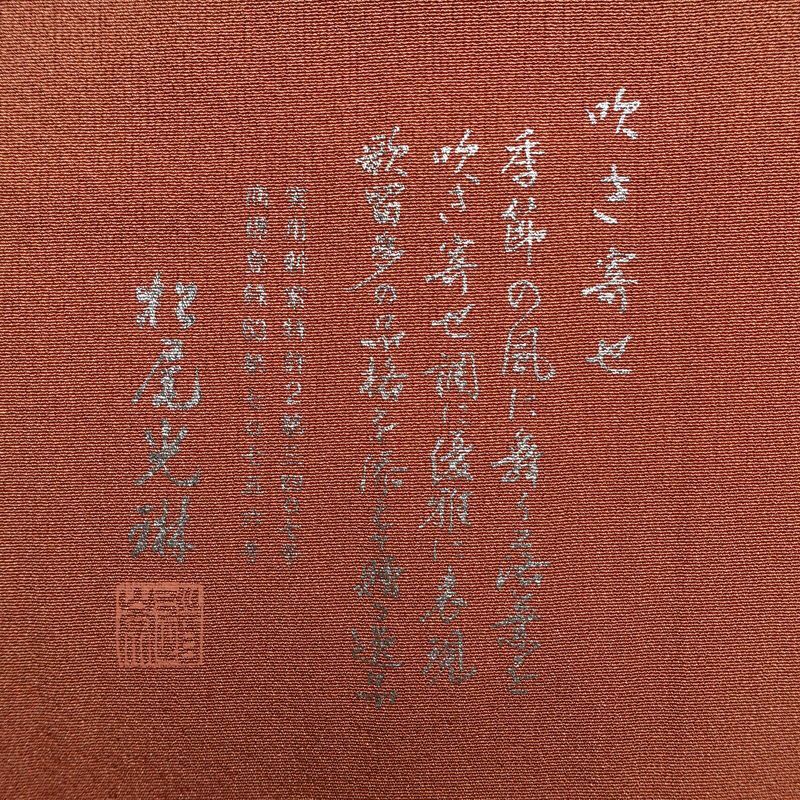 吹き寄せ
季節の風に舞う落葉を
吹き寄せ調に優雅に表現
歌留多の品格を添えて
実用新案特許2第三四〇七号
商標登録昭
松尾光琳